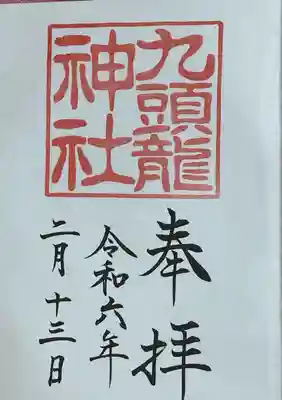 九頭龍
神社
奉拝
令和六年
二月十三日